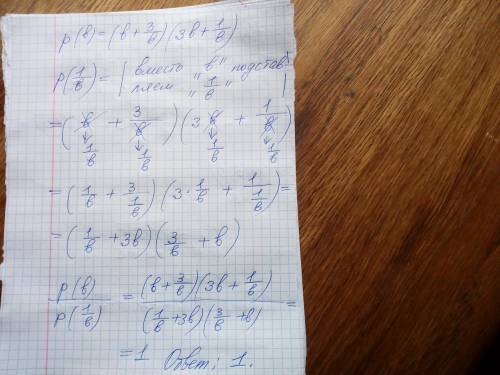 p(b)=(b+3/b)(3b+1/b)
p(1/b)= | вместо "b" подстав
ляем "1/b" |
=(b + 3/b)(3b + 1/b)
↓ ↓ ↓ ↓
1/b 1/b 1/b 1/b
=(1/b + 3/(1/b))(3·1/b + 1/(1/b))=
=(1/b +3b)(3/b +b)
p(b)/p(1/b) = (b+3/b)(3b+1/b)/(1/b+3b)(3/b+b) =
=1 Ответ: 1.